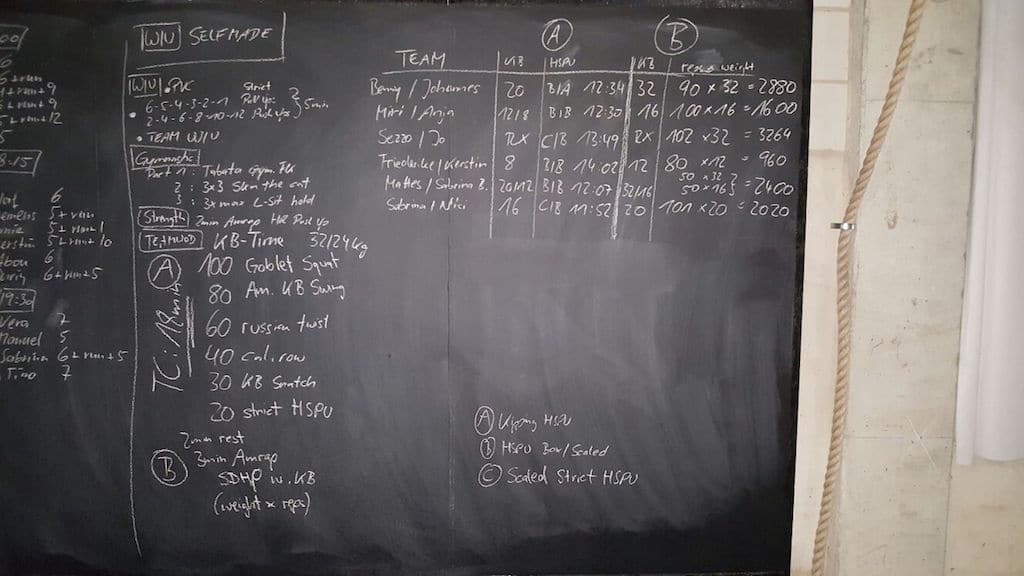 00
6
6+run
+run+9
+run+9
5+run+12
5
8:15
6
5+run
5+run+1
5+run+10
6
6+run+5
19:30
Vera 7
Manuel 5
Sabrina 6+run+5
Tino 7
W/U SELFMADE
W/U
6-5-4-3-2-1 Strict Pull ups
2-4-6-8-10-12 Push ups } 5min
• TEAM W/U
Gymnastic
Part 1: Tabata Gym.
2: 3x3 Skin the cat
3: 3x max L-Sit hold
Strength 7min Amrap HR Push up
TEAMWOD KB-Time 32/24kg
A 100 Goblet Squat
TC: 18min
80 Am. KB Swing
60 russian twist
40 cal. row
30 KB Snatch
20 strict HSPU
2min rest
B 3min Amrap
SDHP w. KB
(weight x reps)
A B
TEAM KB HSPU KB reps weight
Benny / Johannes 20 B/A 12:34 32 90 x 32 = 2880
Miri / Anja 12/8 B/B 12:30 16 100 x 16 = 1600
Sezzo / Jo RX C/B 13:49 RX 102 x 32 = 3264
Friederike / Kerstin 8 B/B 14:02 12 80 x 12 = 960
Mattes / Sabrina B. 20/12 B/B 12:07 32/16 50 x 32 50 x 16 } = 2400
Sabrina / Niki 16 C/B 11:52 20 101 x 20 = 2020
A Kipping HSPU
B HSPU Box/Scaled
C Scaled Strict HSPU